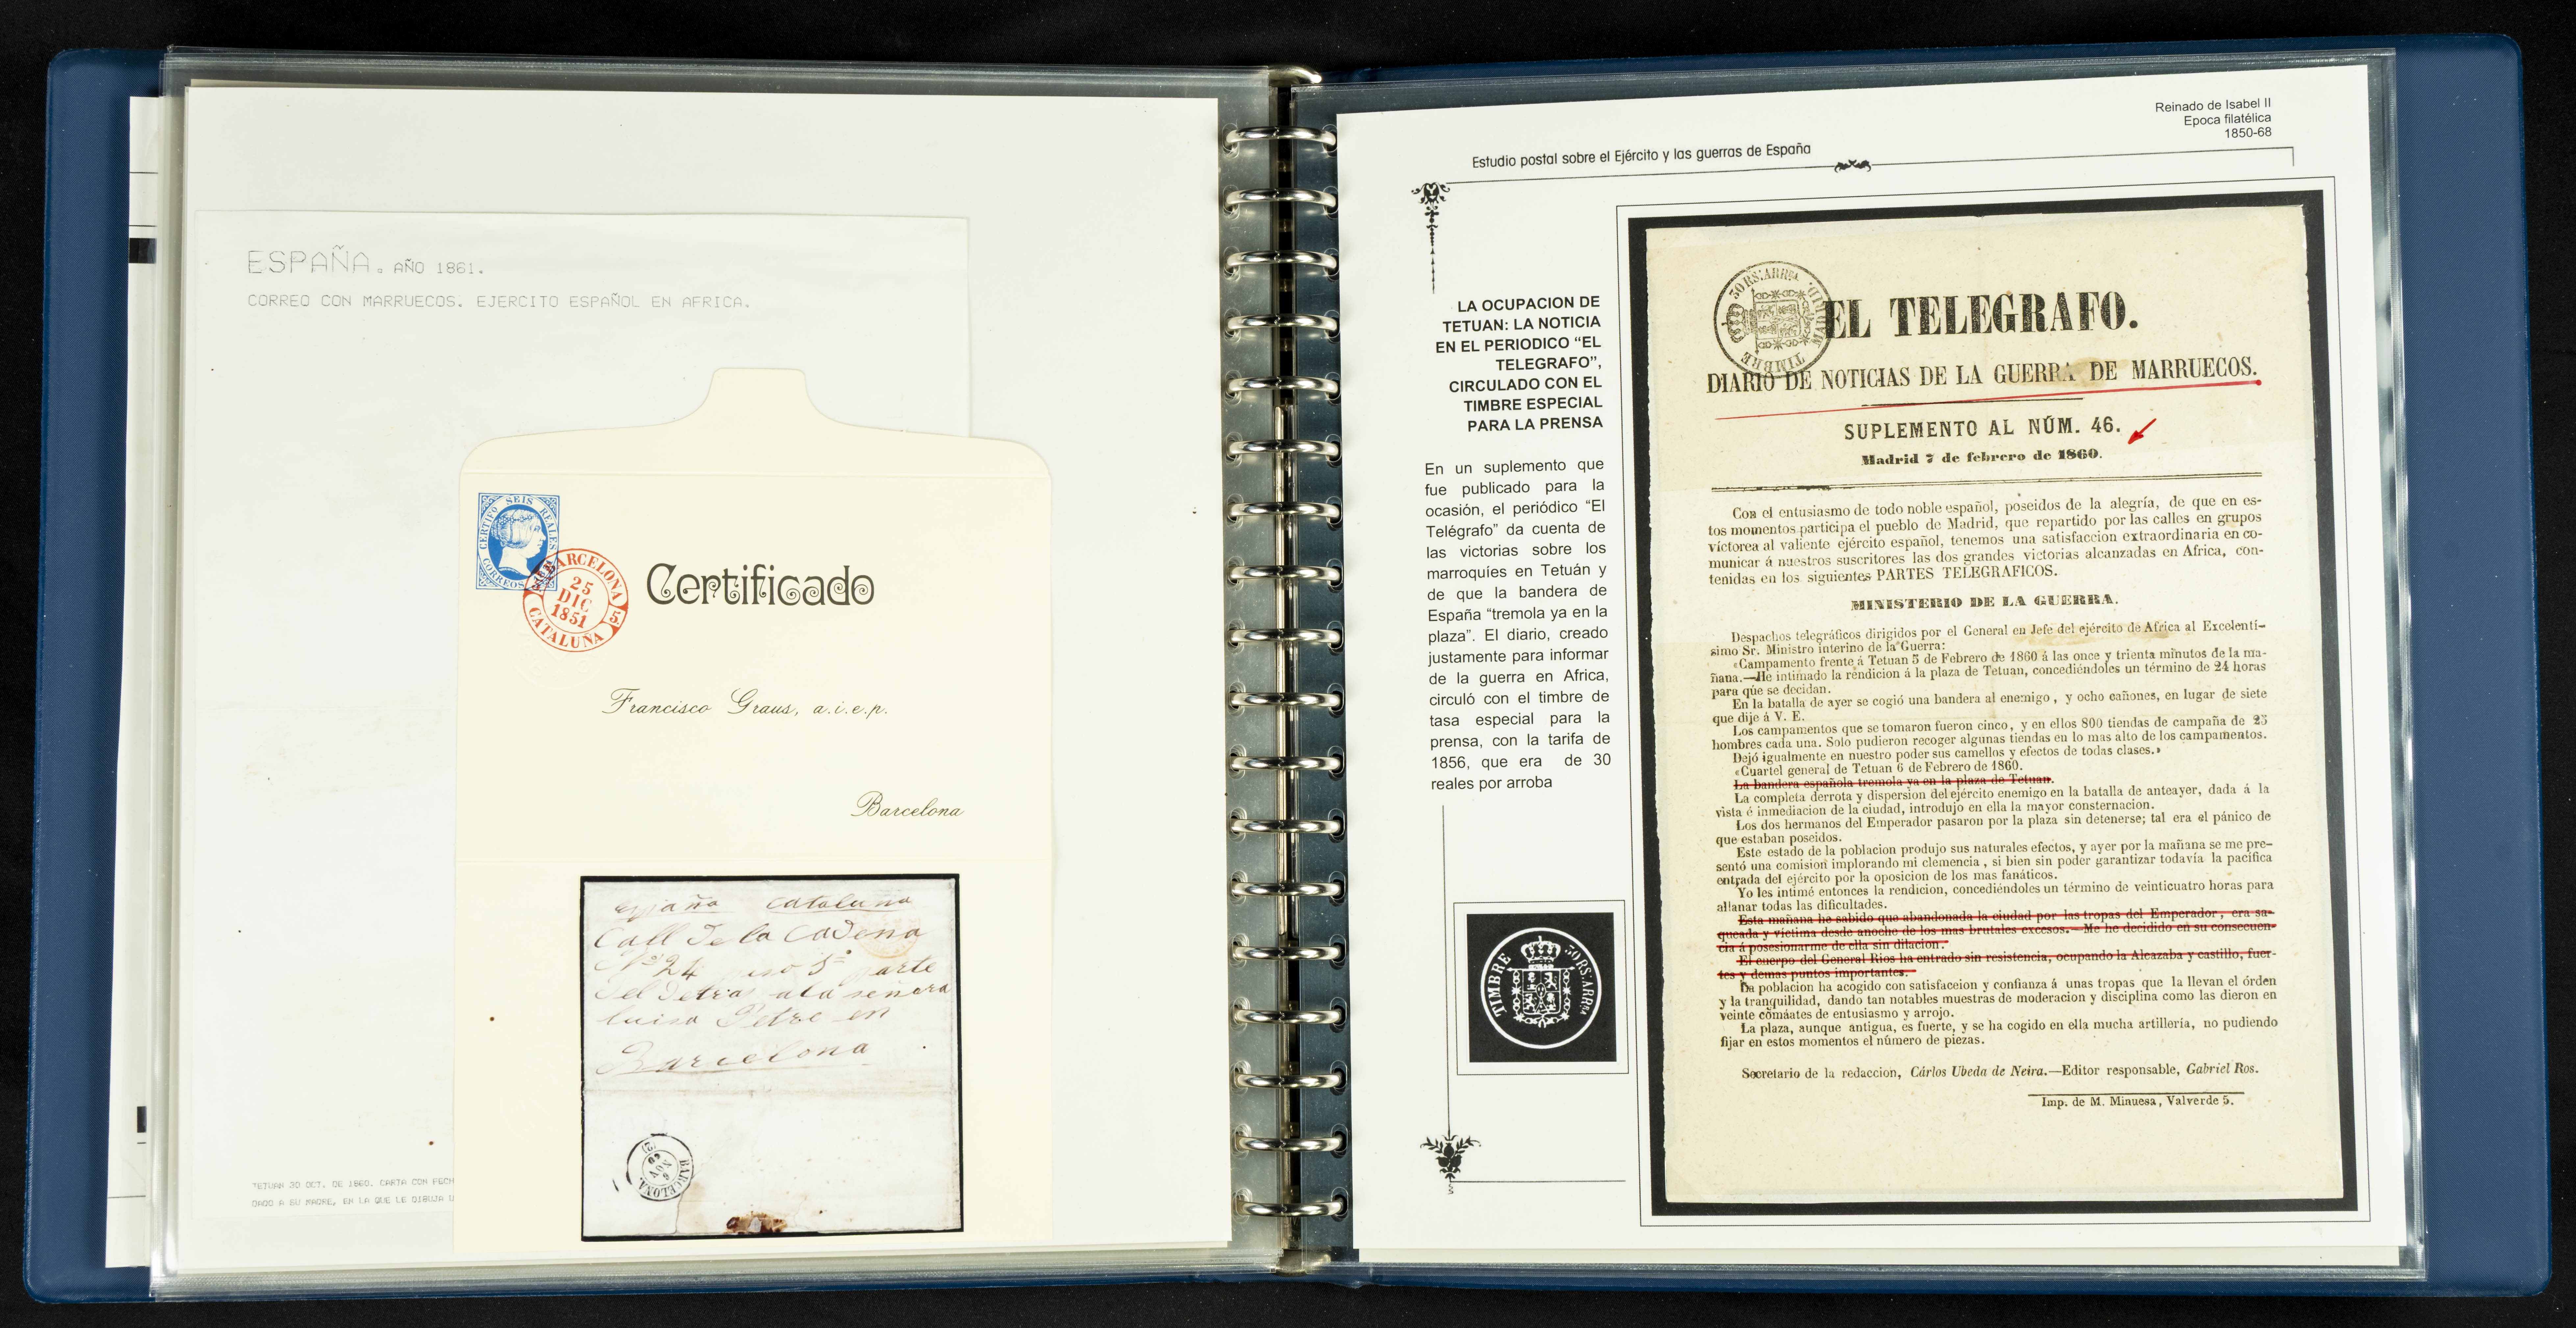 ESPAÑA. AÑO 1861.
CORREO CON MARRUECOS. EJERCITO ESPAÑOL EN AFRICA.
CERTIFO SEIS REALES
CORREOS 1851
BARCELONA
25
DIC
1851
CATALUÑA
Certificado
Francisco Graus, a.i.e.p.
Barcelona
España Cataluña
Call De la Cadena
Nº 24 piso 3º parte
del Detras a la señora
luisa Petre en
Barcelona
BARCELONA
6
NOV
60
(2)
TETUAN 20 OCT. DE 1860. CARTA CON FECH
DADO A SU MADRE, EN LA QUE LE DIBUJA U
Reinado de Isabel II
Epoca filatélica
1850-68
Estudio postal sobre el Ejército y las guerras de España
LA OCUPACION DE
TETUAN: LA NOTICIA
EN EL PERIODICO “EL
TELEGRAFO”,
CIRCULADO CON EL
TIMBRE ESPECIAL
PARA LA PRENSA
En un suplemento que
fue publicado para la
ocasión, el periódico “El
Telégrafo” da cuenta de
las victorias sobre los
marroquíes en Tetuán y
de que la bandera de
España “tremola ya en la
plaza”. El diario, creado
justamente para informar
de la guerra en Africa,
circuló con el timbre de
tasa especial para la
prensa, con la tarifa de
1856, que era de 30
reales por arroba
TIMBRE 30 RS. ARRBA
TIMBRE 30 RS. ARRBA. MADRID.
EL TELEGRAFO.
DIARIO DE NOTICIAS DE LA GUERRA DE MARRUECOS.
SUPLEMENTO AL NÚM. 46.
Madrid 7 de febrero de 1860.
Con el entusiasmo de todo noble español, poseidos de la alegría, de que en es-
tos momentos participa el pueblo de Madrid, que repartido por las calles en grupos
víctorea al valiente ejército español, tenemos una satisfaccion extraordinaria en co-
municar á nuestros suscritores las dos grandes victorias alcanzadas en Africa, con-
tenidas en los siguientes PARTES TELEGRAFICOS.
MINISTERIO DE LA GUERRA.
Despachos telegráficos dirigidos por el General en Jefe del ejército de Africa al Excelentí-
simo Sr. Ministro interino de la Guerra:
«Campamento frente á Tetuan 5 de Febrero de 1860 á las once y trienta minutos de la ma-
ñana.—He intimado la rendicion á la plaza de Tetuan, concediéndoles un término de 24 horas
para que se decidan.
En la batalla de ayer se cogió una bandera al enemigo, y ocho cañones, en lugar de siete
que dije á V. E.
Los campamentos que se tomaron fueron cinco, y en ellos 800 tiendas de campaña de 25
hombres cada una. Solo pudieron recoger algunas tiendas en lo mas alto de los campamentos.
Dejó igualmente en nuestro poder sus camellos y efectos de todas clases.»
«Cuartel general de Tetuan 6 de Febrero de 1860.
La bandera española tremola ya en la plaza de Tetuan.
La completa derrota y dispersion del ejército enemigo en la batalla de anteayer, dada á la
vista é inmediacion de la ciudad, introdujo en ella la mayor consternacion.
Los dos hermanos del Emperador pasaron por la plaza sin detenerse; tal era el pánico de
que estaban poseidos.
Este estado de la poblacion produjo sus naturales efectos, y ayer por la mañana se me pre-
sentó una comision implorando mi clemencia, si bien sin poder garantizar todavía la pacífica
entrada del ejército por la oposicion de los mas fanáticos.
Yo les intimé entonces la rendicion, concediéndoles un término de veinticuatro horas para
allanar todas las dificultades.
Esta mañana he sabido que abandonada la ciudad por las tropas del Emperador, era sa-
queada y víctima desde anoche de los mas brutales excesos.—Me he decidido en su consecuen-
cia á posesionarme de ella sin dilacion.
El cuerpo del General Rios ha entrado sin resistencia, ocupando la Alcazaba y castillo, fuer-
tes y demas puntos importantes.
La poblacion ha acogido con satisfaccion y confianza á unas tropas que la llevan el órden
y la tranquilidad, dando tan notables muestras de moderacion y disciplina como las dieron en
veinte comáates de entusiasmo y arrojo.
La plaza, aunque antigua, es fuerte, y se ha cogido en ella mucha artillería, no pudiendo
fijar en estos momentos el número de piezas.
Secretario de la redaccion, Cárlos Ubeda de Neira.—Editor responsable, Gabriel Ros.
Imp. de M. Minuesa, Valverde 5.